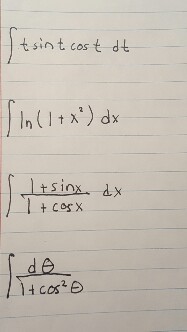 ∫ t sin t cos t dt
∫ ln(1 + x²) dx
∫ (1 + sinx)/(1 + cosx) dx
∫ dθ/(1 + cos²θ)